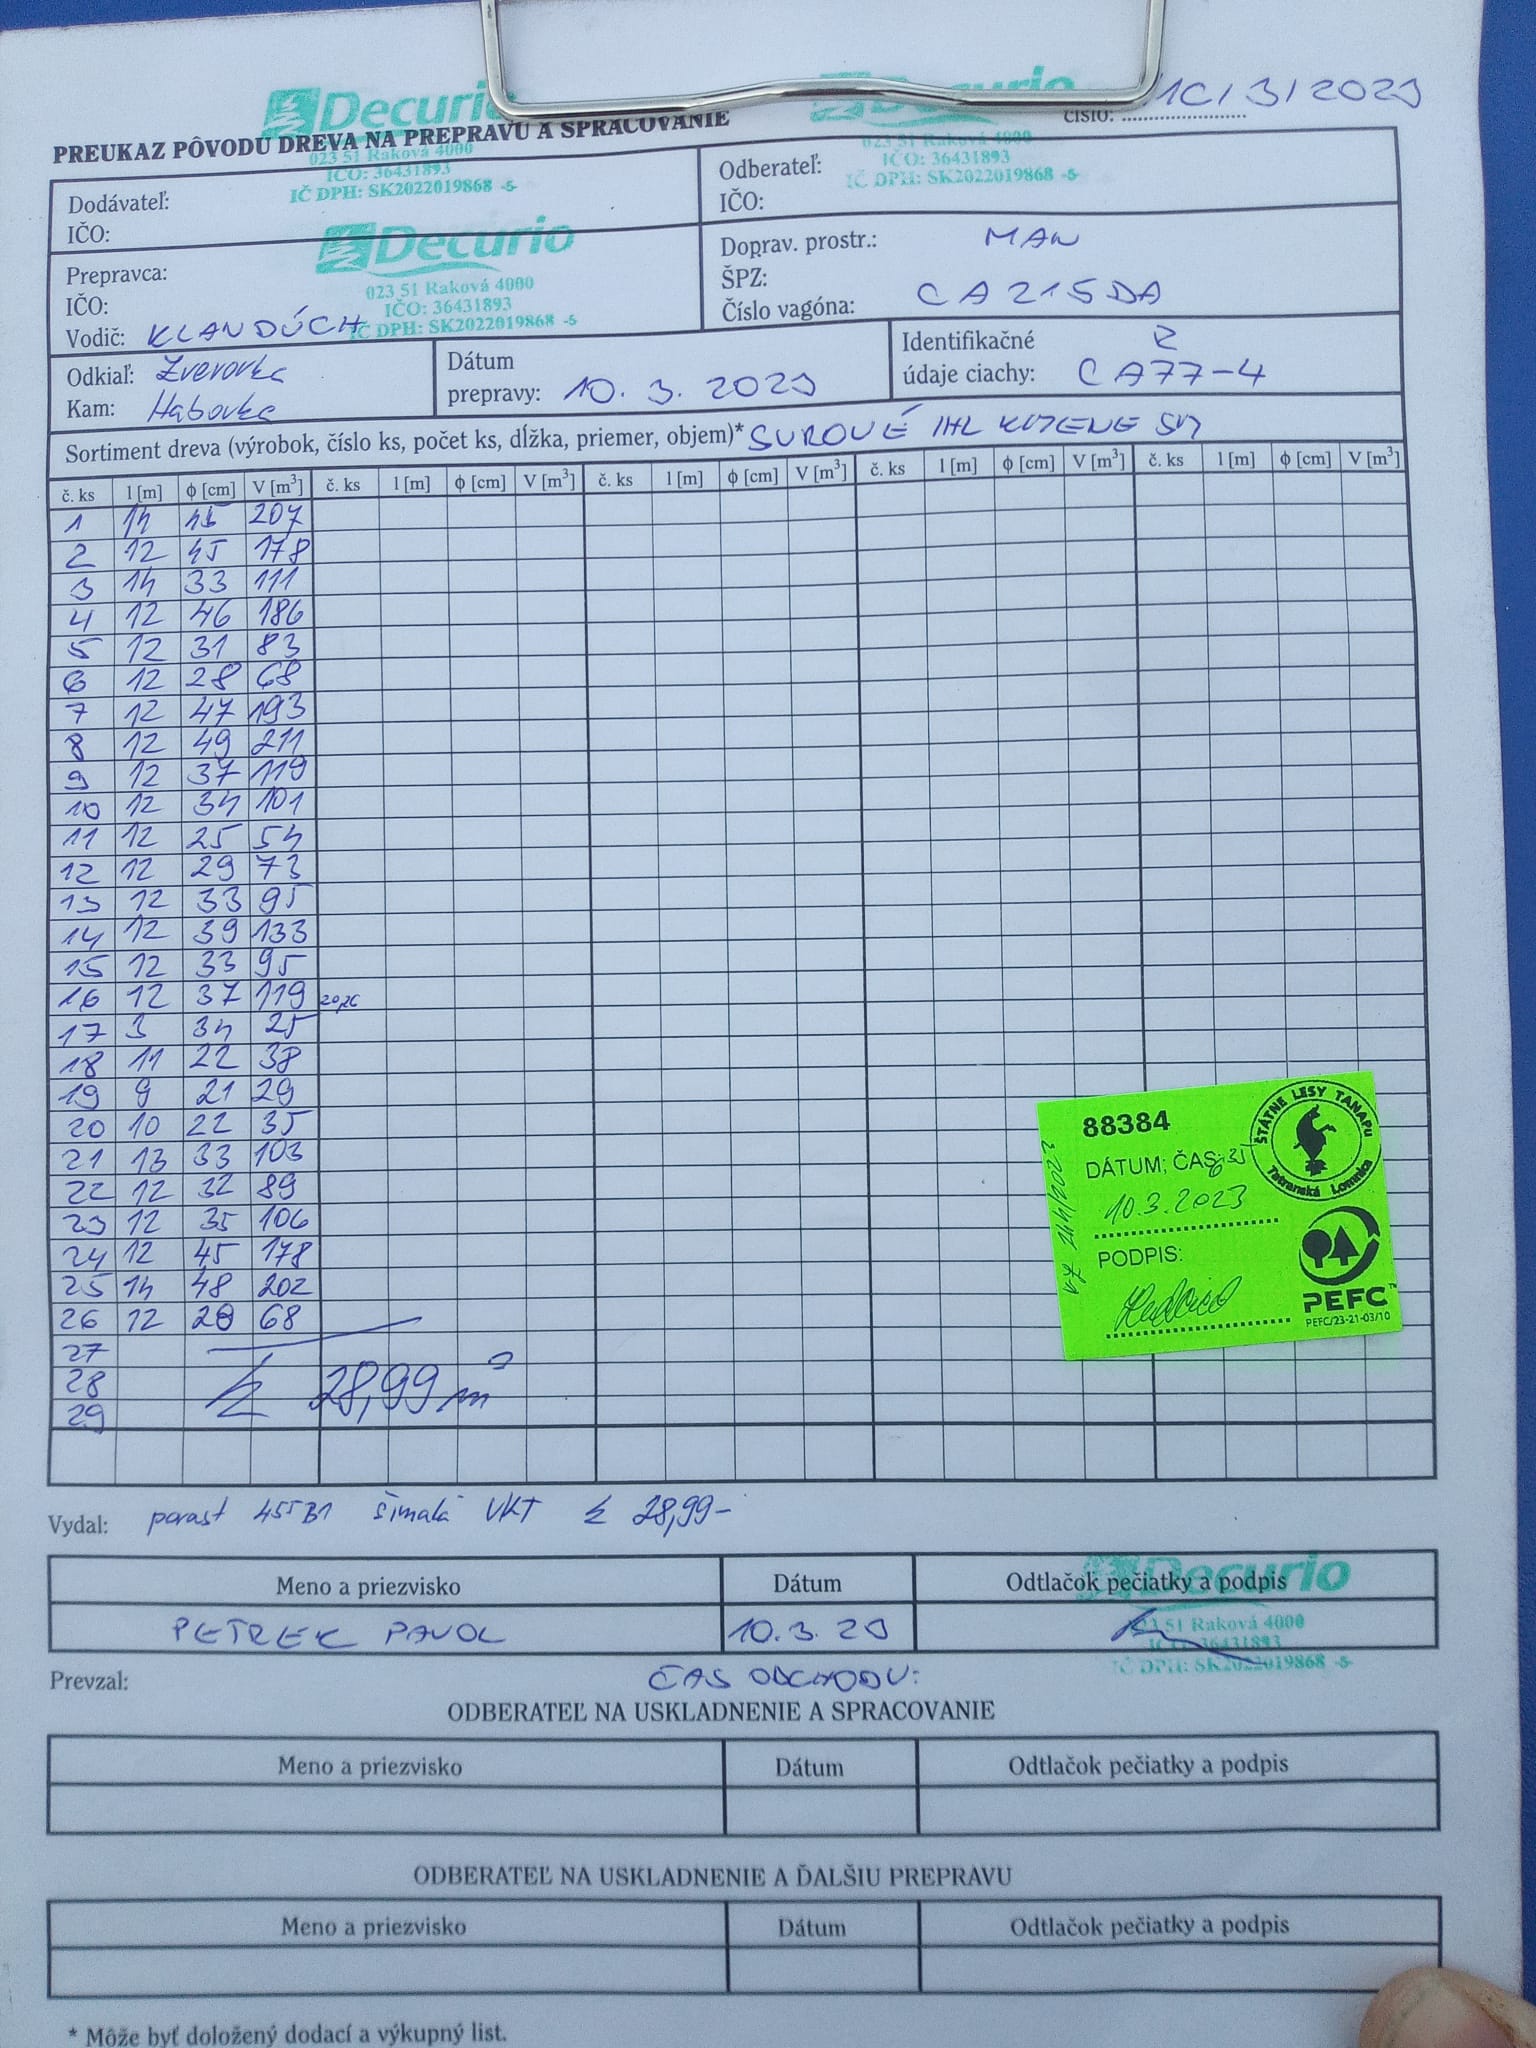 Decurio
Decurio
ČÍSLO: 1C/3/2023
PREUKAZ PÔVODU DREVA NA PREPRAVU A SPRACOVANIE
023 51 Raková 4000
IČO: 36431893
IČ DPH: SK2022019868 -5-
023 51 Raková 4000
IČO: 36431893
IČ DPH: SK2022019868 -5
Dodávateľ:
IČO:
Odberateľ:
IČO:
Decurio
023 51 Raková 4000
IČO: 36431893
IČ DPH: SK2022019868 -5
Prepravca:
IČO:
Vodič: KLANDÚCH
Doprav. prostr.: MAN
ŠPZ:
Číslo vagóna: CA215DA
Odkiaľ: Zverovka
Kam: Habovka
Dátum
prepravy: 10. 3. 2023
Identifikačné
údaje ciachy: CA77-4
Sortiment dreva (výrobok, číslo ks, počet ks, dĺžka, priemer, objem)* SUROVÉ IHL KMENE SM
č. ks l [m] ϕ [cm] V [m³] č. ks l [m] ϕ [cm] V [m³] č. ks l [m] ϕ [cm] V [m³] č. ks l [m] ϕ [cm] V [m³] č. ks l [m] ϕ [cm] V [m³]
1 14 45 207
2 12 45 178
3 14 33 111
4 12 46 186
5 12 31 83
6 12 28 68
7 12 47 193
8 12 49 211
9 12 37 119
10 12 34 101
11 12 25 54
12 12 29 73
13 12 33 95
14 12 39 133
15 12 33 95
16 12 37 119 20,26
17 3 34 25
18 11 22 38
19 9 21 29
20 10 22 35
21 13 33 103
22 12 32 89
23 12 35 106
24 12 45 178
25 14 48 202
26 12 28 68
27
28 Σ 28,99 m³
29
88384
DÁTUM; ČAS: 
10.3.2023
PODPIS:
ŠTÁTNE LESY TANAPu
Tatranská Lomnica
PEFC™
PEFC/23-21-03/10
Vydal: porast 455B1 Šimalá VKT Σ 28,99-
Meno a priezvisko Dátum Odtlačok pečiatky a podpis
PETREK PAVOL 10.3.23
Decurio
023 51 Raková 4000
IČO: 36431893
IČ DPH: SK2022019868 -5-
Prevzal: ČAS ODCHODU:
ODBERATEĽ NA USKLADNENIE A SPRACOVANIE
Meno a priezvisko Dátum Odtlačok pečiatky a podpis
ODBERATEĽ NA USKLADNENIE A ĎALŠIU PREPRAVU
Meno a priezvisko Dátum Odtlačok pečiatky a podpis
* Môže byť doložený dodací a výkupný list.